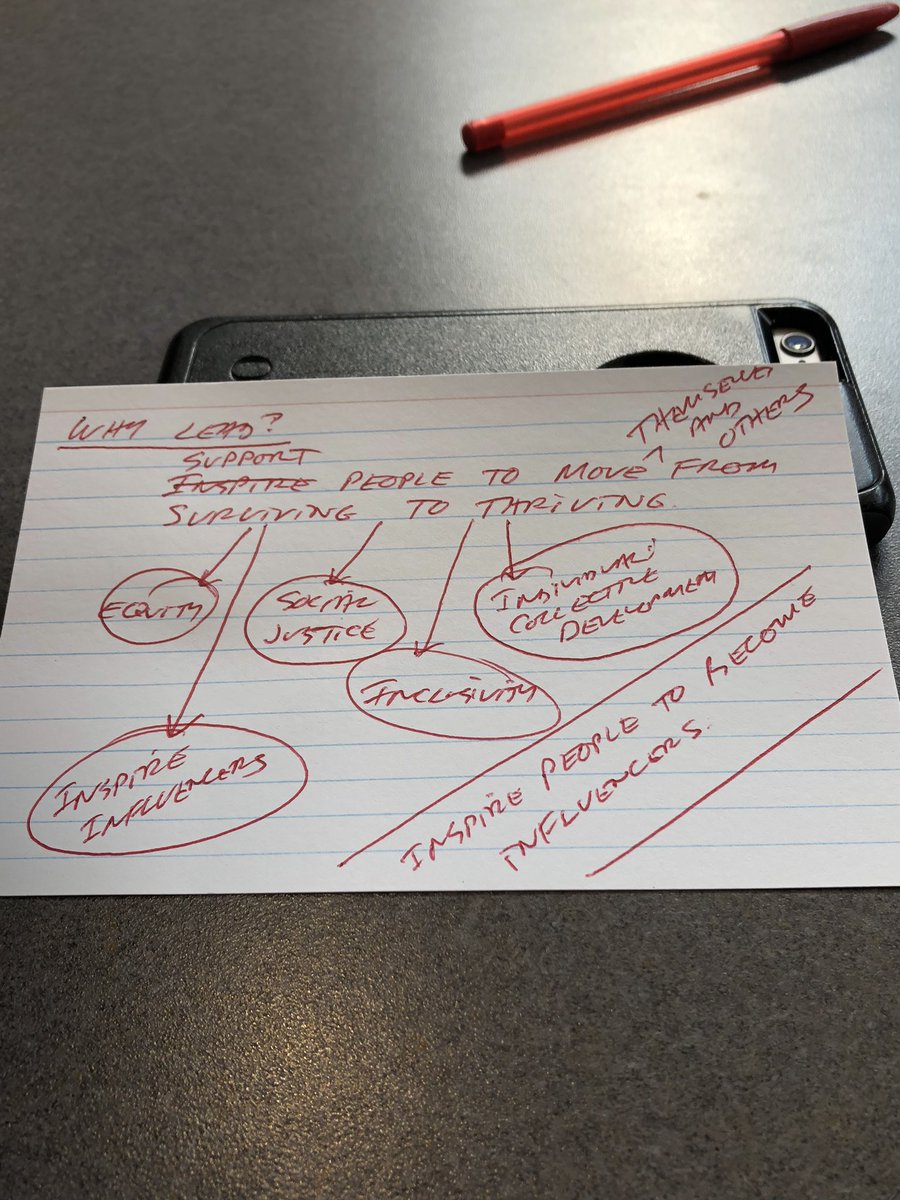 WHY LEAD?
THEMSELVES
AND
OTHERS
SUPPORT
INSPIRE PEOPLE TO MOVE ^ FROM
SURVIVING TO THRIVING.
EQUITY
SOCIAL
JUSTICE
INDIVIDUAL/
COLLECTIVE
DEVELOPMENT
INCLUSIVITY
INSPIRE
INFLUENCERS
INSPIRE PEOPLE TO BECOME
INFLUENCERS.